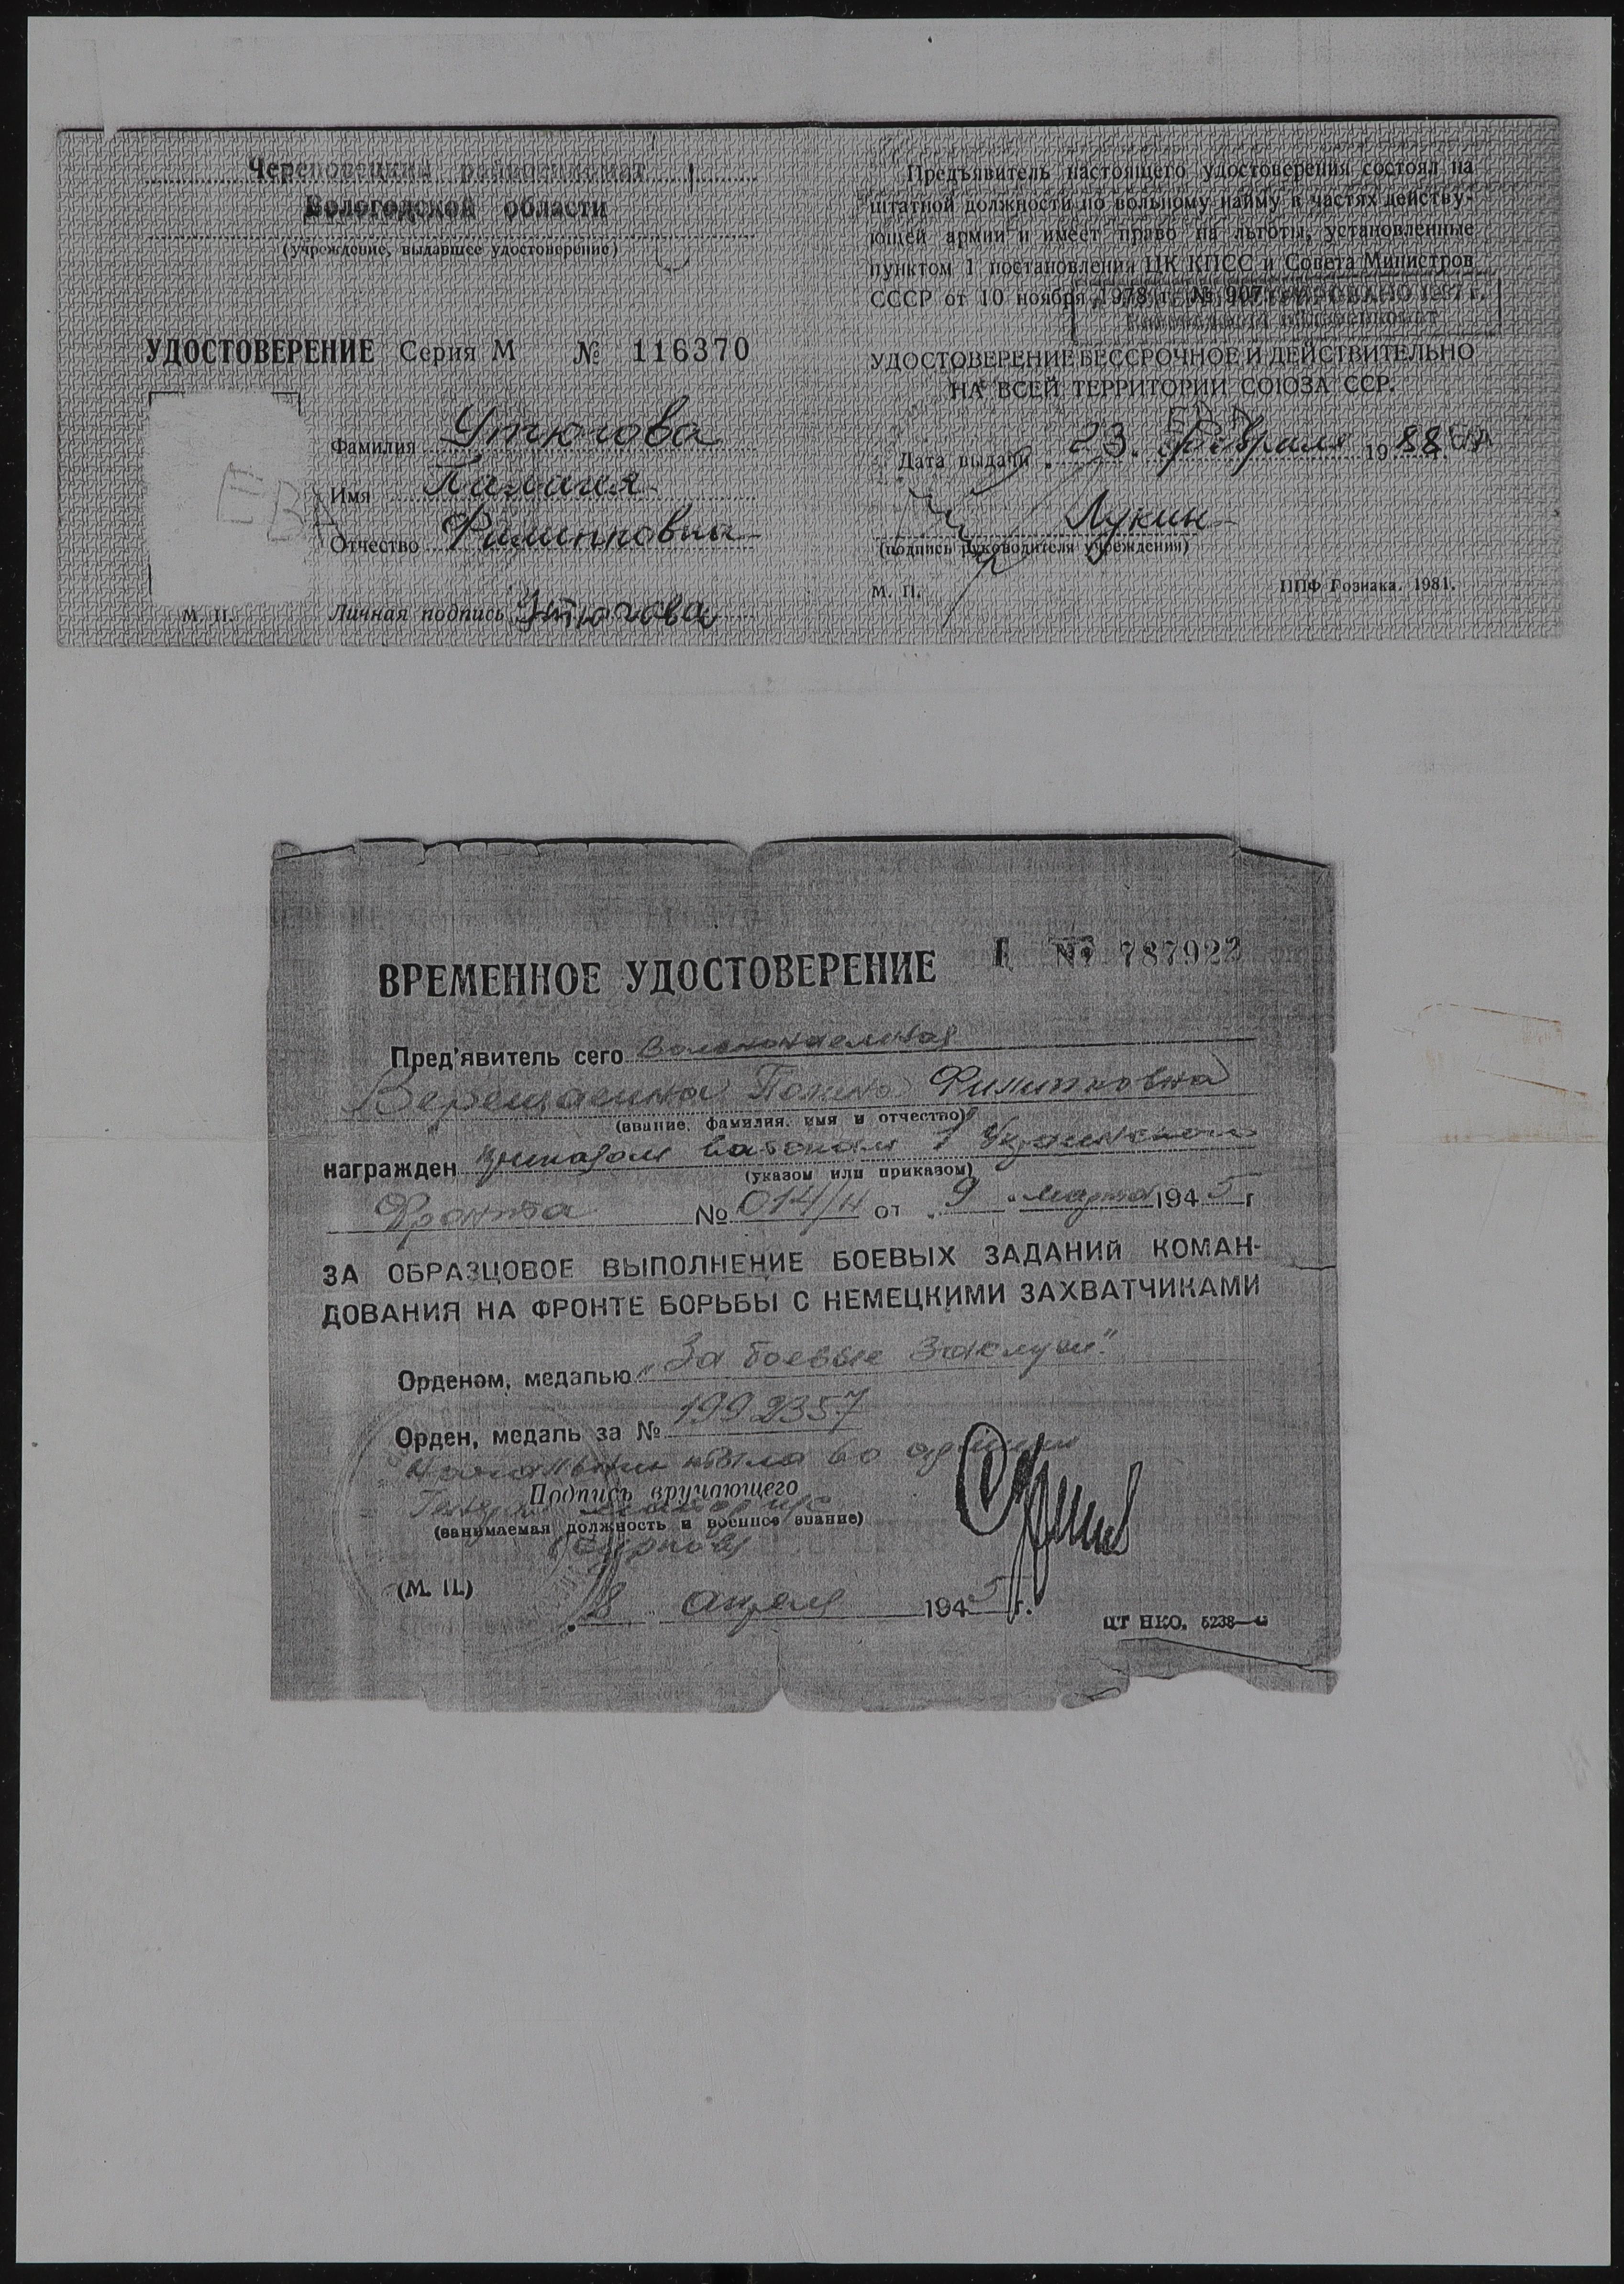 Череповецкий райвоенкомат
Вологодской области
(учреждение, выдавшее удостоверение)
УДОСТОВЕРЕНИЕ Серия М № 116370
Фамилия Утюгова
Имя
Отчество Филипповна
М. П. Личная подпись Утюгова
Предъявитель настоящего удостоверения состоял на
штатной должности по вольному найму в частях действу-
ющей армии и имеет право на льготы, установленные
пунктом 1 постановления ЦК КПСС и Совета Министров
СССР от 10 ноября 1978 г. № 907.
1997 г.
УДОСТОВЕРЕНИЕ БЕССРОЧНОЕ И ДЕЙСТВИТЕЛЬНО
НА ВСЕЙ ТЕРРИТОРИИ СОЮЗА ССР.
Дата выдачи 23. февраля 1988
Лукин
(подпись руководителя учреждения)
М. П. ППФ Гознака. 1981.
№ 787923
ВРЕМЕННОЕ УДОСТОВЕРЕНИЕ
Пред'явитель сего вольнонаемная
Верещагина Филипповна
(звание, фамилия, имя и отчество)
награжден приказом войскам 1 Украинского
(указом или приказом)
Фронта № 014/н от 9 марта 1945 г
ЗА ОБРАЗЦОВОЕ ВЫПОЛНЕНИЕ БОЕВЫХ ЗАДАНИЙ КОМАН-
ДОВАНИЯ НА ФРОНТЕ БОРЬБЫ С НЕМЕЦКИМИ ЗАХВАТЧИКАМИ
Орденом, медалью „За боевые заслуги"
Орден, медаль за № 1992357
Подпись вручающего
(занимаемая должность и военное звание)
(М. П.)
8 апреля 1945 г.
ЦТ НКО. 5238—